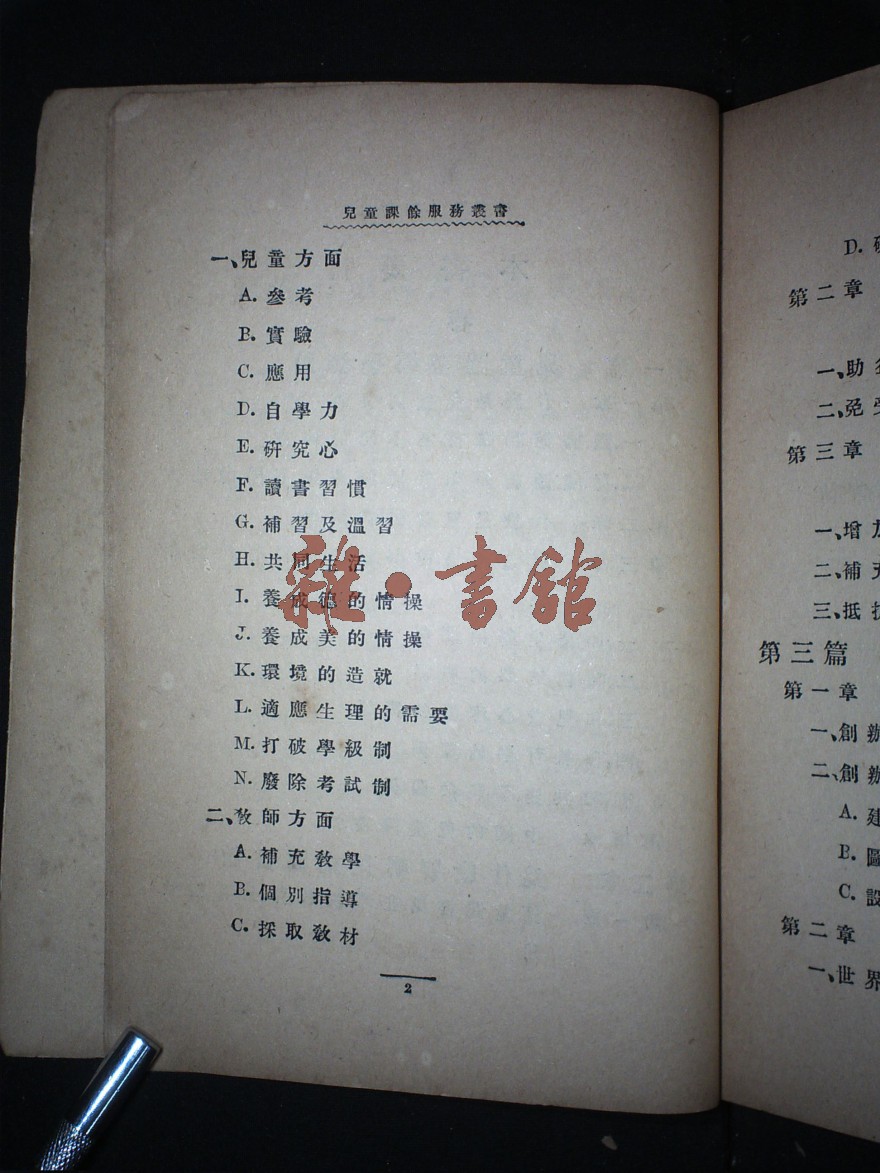 兒童課餘服務叢書
一、兒童方面
A. 參考
B. 實驗
C. 應用
D. 自學力
E. 研究心
F. 讀書習慣
G. 補習及溫習
H. 共同生活
I. 養成德的情操
J. 養成美的情操
K. 環境的造就
L. 適應生理的需要
M. 打破學級制
N. 廢除考試制
二、教師方面
A. 補充教學
B. 個別指導
C. 採取教材
2
雜·書館
D.
第二章
一、助
二、免
第三章
一、增
二、補充
三、抵
第三篇
第一章
一、創辦
二、創辦
A. 建
B. 圖
C. 設
第二章
一、世界